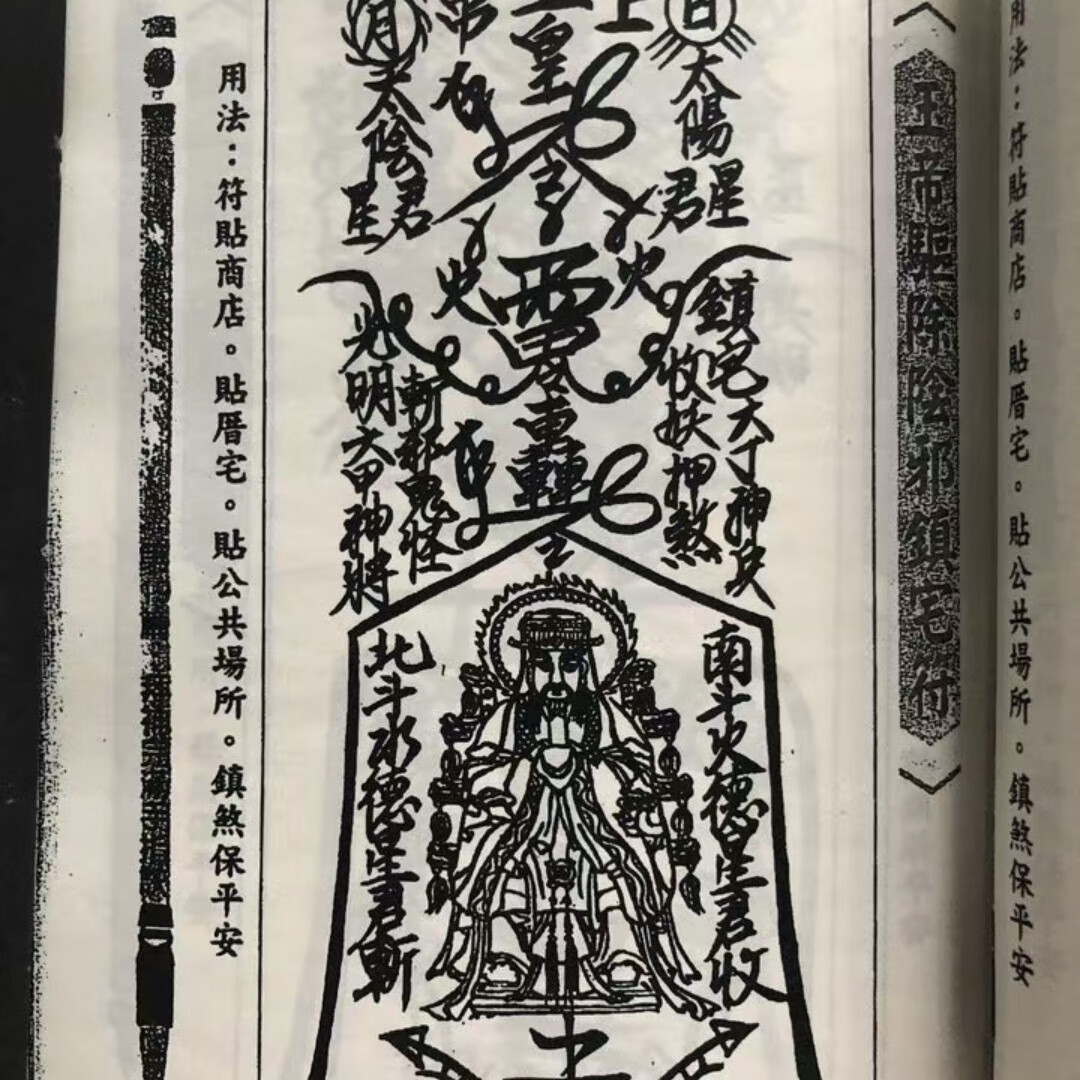 用法：符貼商店。貼厝宅。貼公共場所。鎮煞保平安
玉帝驅除陰邪鎮宅符
日
太陽星君
上
皇
令
月
太陰星君
火
火
鎮宅六丁神
收妖押煞
轉
斬邪鬼怪
光明六甲神將
南斗火德星君收
北斗水德星君斬
用法：符貼商店。貼厝宅。貼公共場所。鎮煞保平安